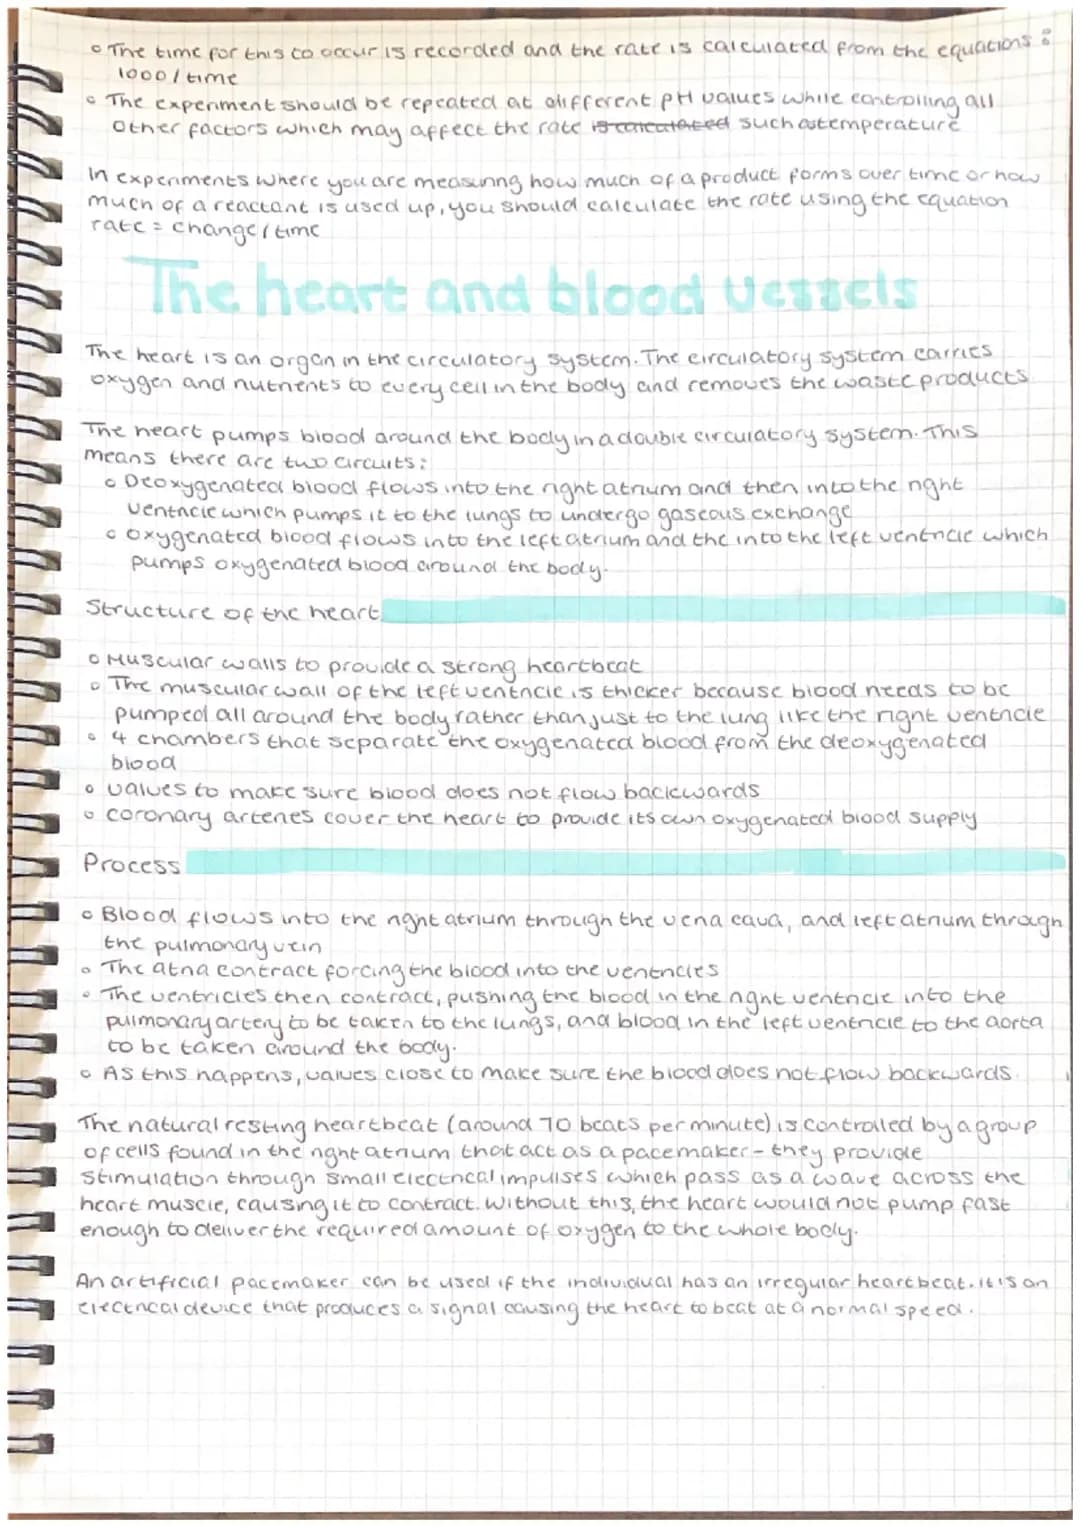 The time for this to occur is recorded and the rate is calculated from the equations:
1000/time
The experiment should be repeated at different pH values while controlling all
other factors which may affect the rate is calculated such as temperature
In experiments where you are measuring how much of a product forms over time or how
much of a reactant is used up, you should calculate the rate using the equation
rate = change/time
The heart and blood vessels
The heart is an organ in the circulatory system. The circulatory system carries
oxygen and nutrients to every cell in the body and removes the waste products.
The heart pumps blood around the body in a double circulatory system. This
means there are two circuits:
Deoxygenated blood flows into the right atrium and then into the right
ventricle which pumps it to the lungs to undergo gaseous exchange
Oxygenated blood flows into the left atrium and the into the left ventricle which
pumps oxygenated blood around the body.
Structure of the heart
Muscular walls to provide a strong heartbeat
The muscular wall of the left ventricle is thicker because blood needs to be
pumped all around the body rather than just to the lung like the right ventricle
4 chambers that separate the oxygenated blood from the deoxygenated
blood
Valves to make sure blood does not flow backwards
Coronary arteries cover the heart to provide its own oxygenated blood supply
Process
Blood flows into the right atrium through the vena cava, and left atrium through
the pulmonary vein
The atria contract forcing the blood into the ventricles
The ventricles then contract, pushing the blood in the right ventricle into the
pulmonary artery to be taken to the lungs, and blood in the left ventricle to the aorta
to be taken around the body.
As this happens, valves close to make sure the blood does not flow backwards.
The natural resting heartbeat (around 70 beats per minute) is controlled by a group
of cells found in the right atrium that act as a pacemaker - they provide
stimulation through small electrical impulses which pass as a wave across the
heart muscle, causing it to contract. Without this, the heart would not pump fast
enough to deliver the required amount of oxygen to the whole body.
An artificial pacemaker can be used if the individual has an irregular heartbeat. It is an
electrical device that produces a signal causing the heart to beat at a normal speed.